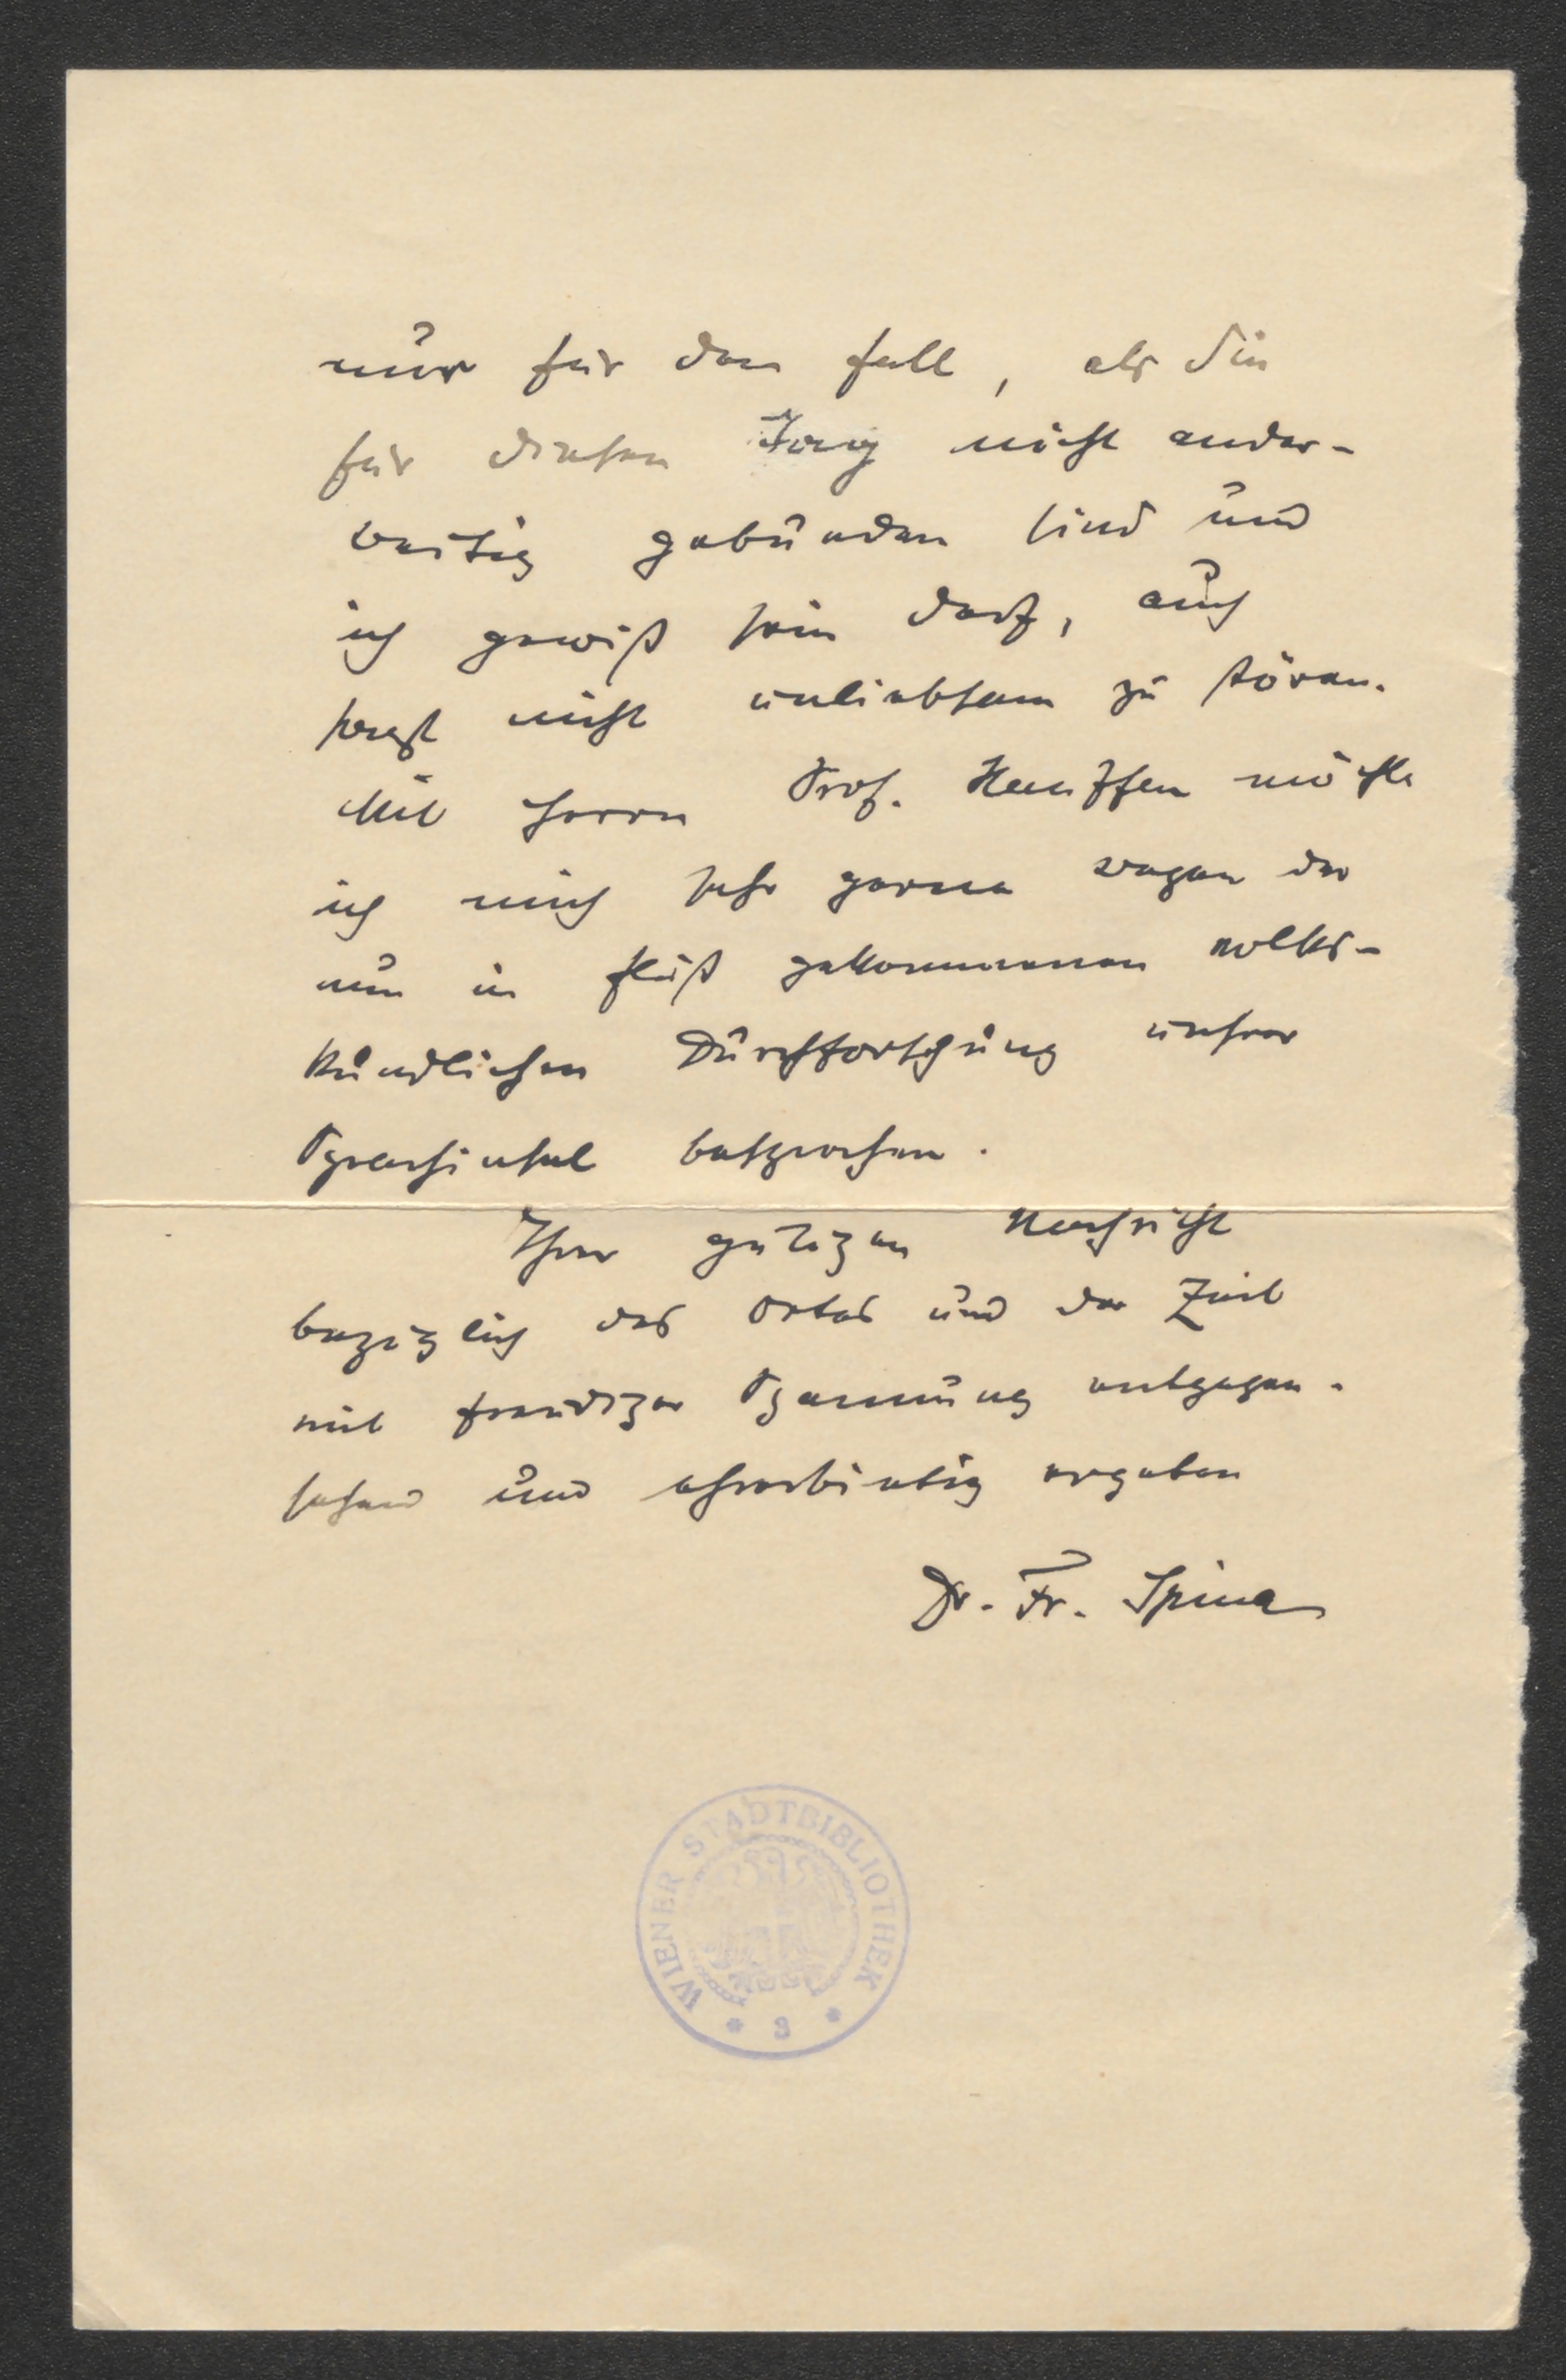 nur für den Fall, als Sie
für diesen Tag nicht ander-
weitig gebunden sind und
ich gewiß sein darf, auch
sonst nicht unliebsam zu stören.
Mit Herrn Prof. Hauffen möchte
ich mich sehr gerne wegen der
nun in Fluß gekommenen volks-
kundlichen Durchforschung unsrer
Sprachinsel besprechen.
Ihrer gütigen Nachricht
bezüglich des Ortes und der Zeit
mit freudiger Spannung entgegen-
sehend und ehrerbietig ergeben
Dr. Fr. Spina
WIENER STADTBIBLIOTHEK
* 3 *